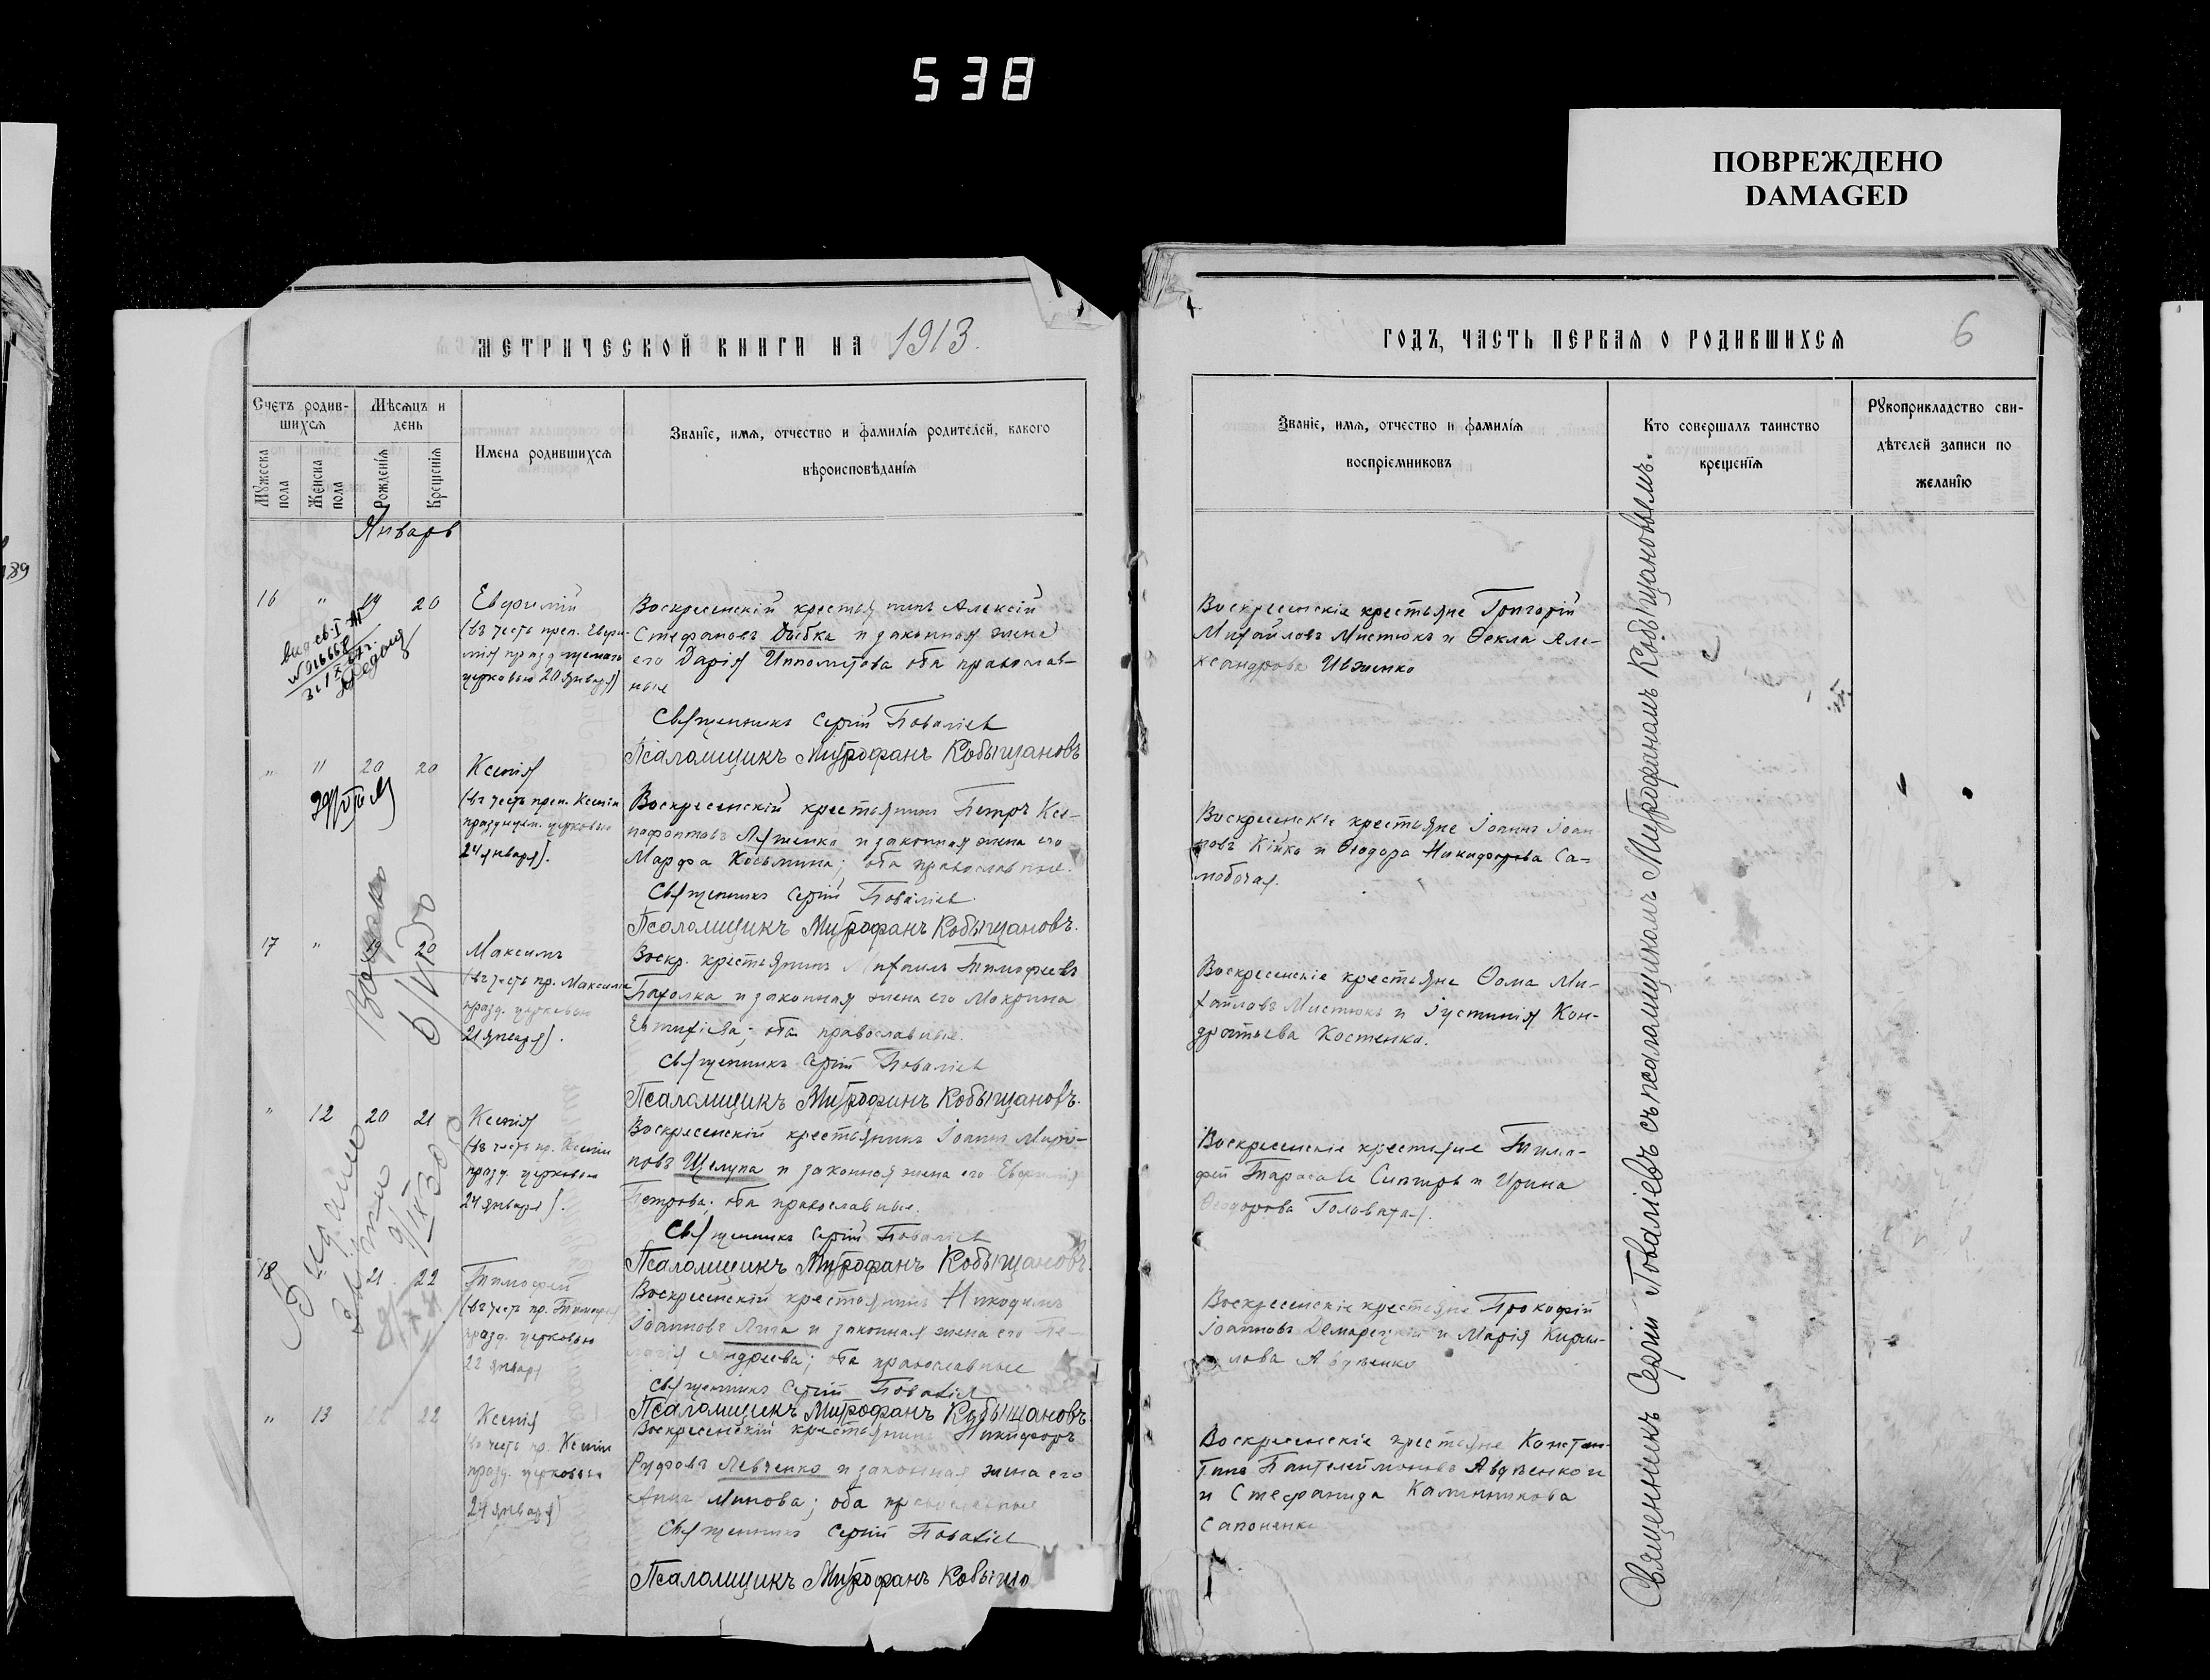 538
ПОВРЕЖДЕНО
DAMAGED
189
МЕТРИЧЕСКОЙ КНИГИ НА 1913.
Счетъ родив-
шихся
Мѣсяцъ и
день
Мужеска
пола
Женска
пола
Рожденія
Крещенія
Имена родившихся
Званіе, имя, отчество и фамилія родителей, какого
вѣроисповѣданія
Январь
16 " 19 20
Евфимій
(въ честь преп. Евфи-
мія празднуемаго
церковью 20 января)
Воскресенскій крестьянинъ Алексій
Стефановъ Дыбка и законная жена
его Дарія Ипполитова оба православ-
ные
Священникъ Сергій Поваліевъ
Псаломщикъ Митрофанъ Кобыщановъ
" 11 20 20
Ксенія
(въ честь преп. Ксеніи
празднуем. церковью
24 января).
Воскресенскій крестьянинъ Петръ Ксе-
нофонтовъ Ляшенко и законная жена его
Марфа Косьмина; оба православные.
Священникъ Сергій Поваліевъ
Псаломщикъ Митрофанъ Кобыщановъ.
17 " 19 20
Максимъ
(въ честь пр. Максима
празд. церковью
21 января).
Воскр. крестьянинъ Михаилъ Тимофеевъ
Пахолка и законная жена его Макрина
Евтихіева; оба православные.
Священникъ Сергій Поваліевъ
Псаломщикъ Митрофанъ Кобыщановъ.
" 12 20 21
Ксенія
(въ честь пр. Ксеніи
празд. церковью
24 января).
Воскресенскій крестьянинъ Іоаннъ Миро-
новъ Щелупа и законная жена его Евфимія
Петрова; оба православные.
Священникъ Сергій Поваліевъ
Псаломщикъ Митрофанъ Кобыщановъ.
18 " 21 22
Тимофей
(въ честь пр. Тимофея
празд. церковью
22 января
Воскресенскій крестьянинъ Никодимъ
Іоанновъ Лига и законная жена его Пе-
лагія Андреева; оба православные
Священникъ Сергій Поваліевъ
Псаломщикъ Митрофанъ Кобыщановъ.
" 13 22
Ксенія
(въ честь пр. Ксеніи
празд. церковью
24 января)
Воскресенскій крестьянинъ Никифоръ
Руфовъ Левченко и законная жена его
Анна Минова; оба православные
Священникъ Сергій Поваліевъ
Псаломщикъ Митрофанъ Кобыща
ГОДЪ, ЧАСТЬ ПЕРВАЯ О РОДИВШИХСЯ
6
Званіе, имя, отчество и фамилія
воспріемниковъ
Кто совершалъ таинство
крещенія
Рукоприкладство сви-
дѣтелей записи по
желанію
Воскресенскіе крестьяне Григорій
Михайловъ Мистюкъ и Ѳекла Але-
ксандрова Ивженко
Воскресенскіе крестьяне Іоаннъ Іоан
новъ Кійко и Ѳеодора Никифорова Са-
мобочая.
Воскресенскіе крестьяне Ѳома Ми-
хайловъ Мистюкъ и Іустинія Кон-
дратьева Костенко.
Воскресенскіе крестьяне Тимо-
фей Тарасовъ Ситаръ и Ирина
Ѳеодорова Головатая.
Воскресенскіе крестьяне Прокофій
Іоанновъ Демарецкій и Марія Кирил-
лова Авдѣенко
Воскресенскіе крестьяне Констан-
тинъ Пантелеймоновъ Авдѣенко и
и Стефанида Калинникова
Сапоненко
Священникъ Сергій Поваліевъ съ псаломщикомъ Митрофаномъ Кобыщановымъ.